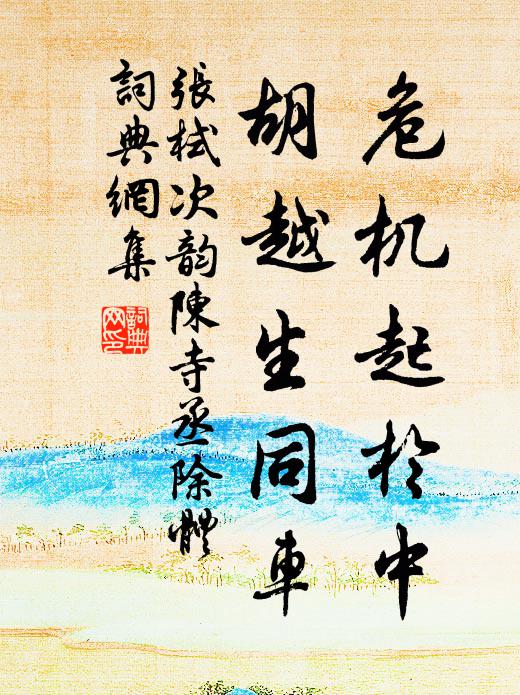 危机起於中
胡越生同車
張栻次韵陳寺丞除體
詞典網集
詞典
网印